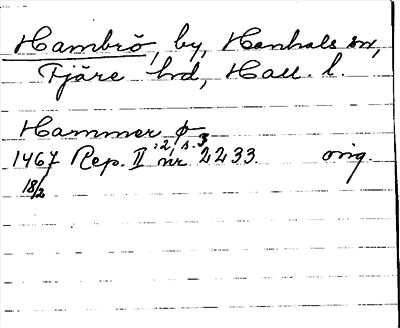 Hambrö, by, Hanhals sn,
Fjäre hd, Hall. l.
Hammer ɸ
1467 Rep. II :2, s. 3 nr 2233. orig.
18/2